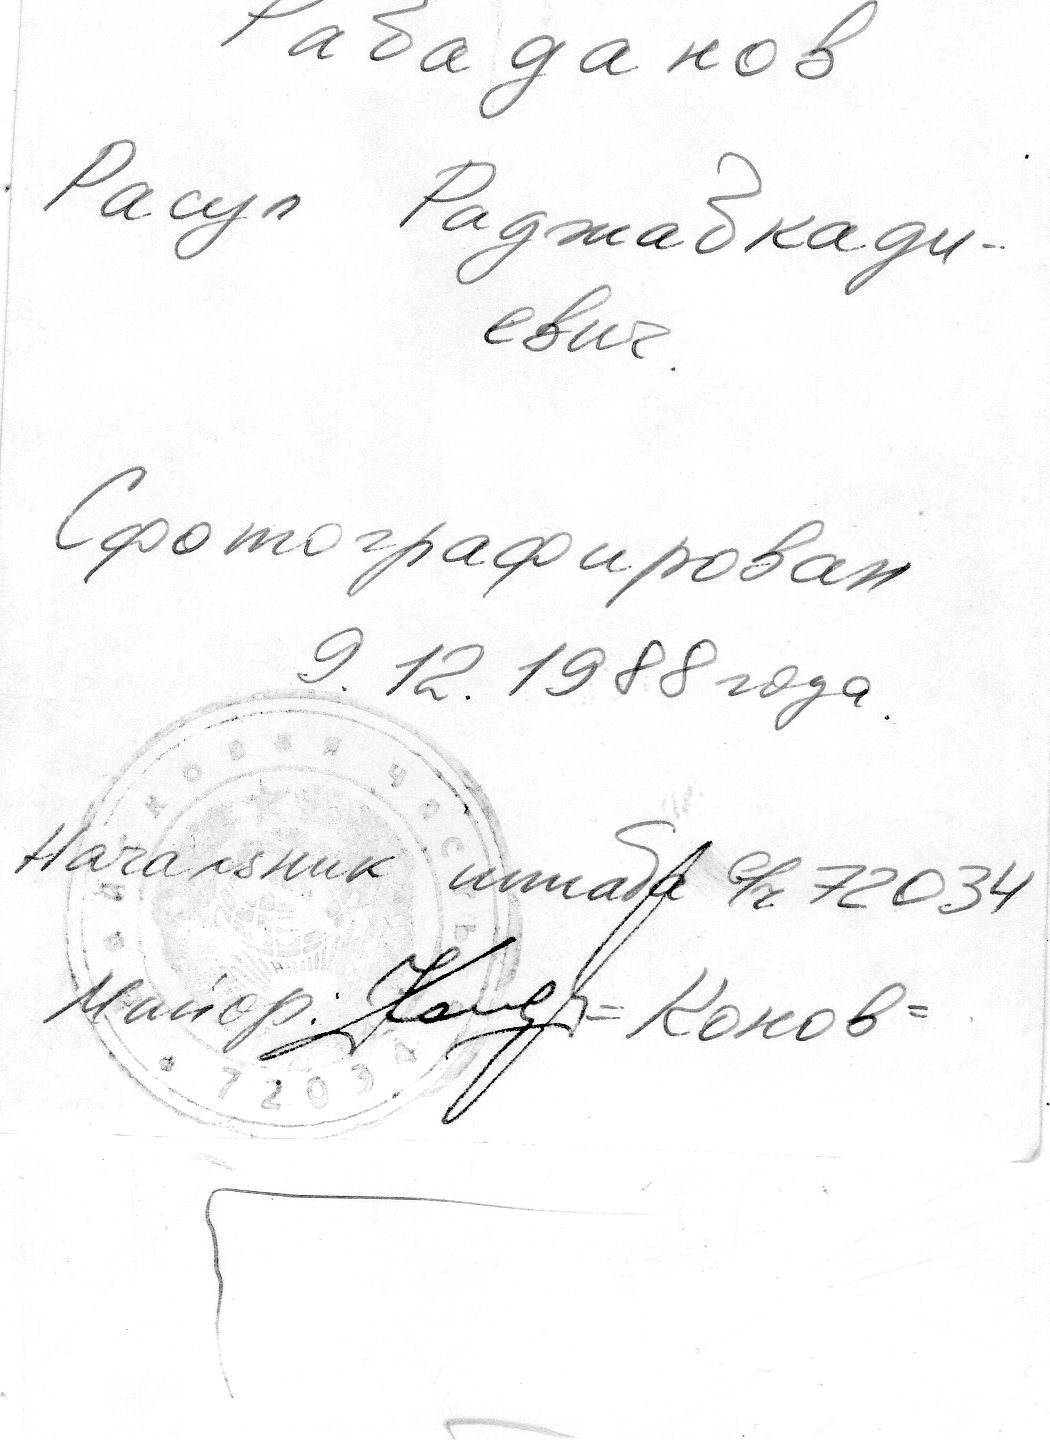 Рабаданов
Расул Раджабкади-
евич.
Сфотографирован
9.12.1988 года.
Начальник штаба в/ч 72034
Майор: =Конов=
ВОЙСКОВАЯ ЧАСТЬ
* 72034